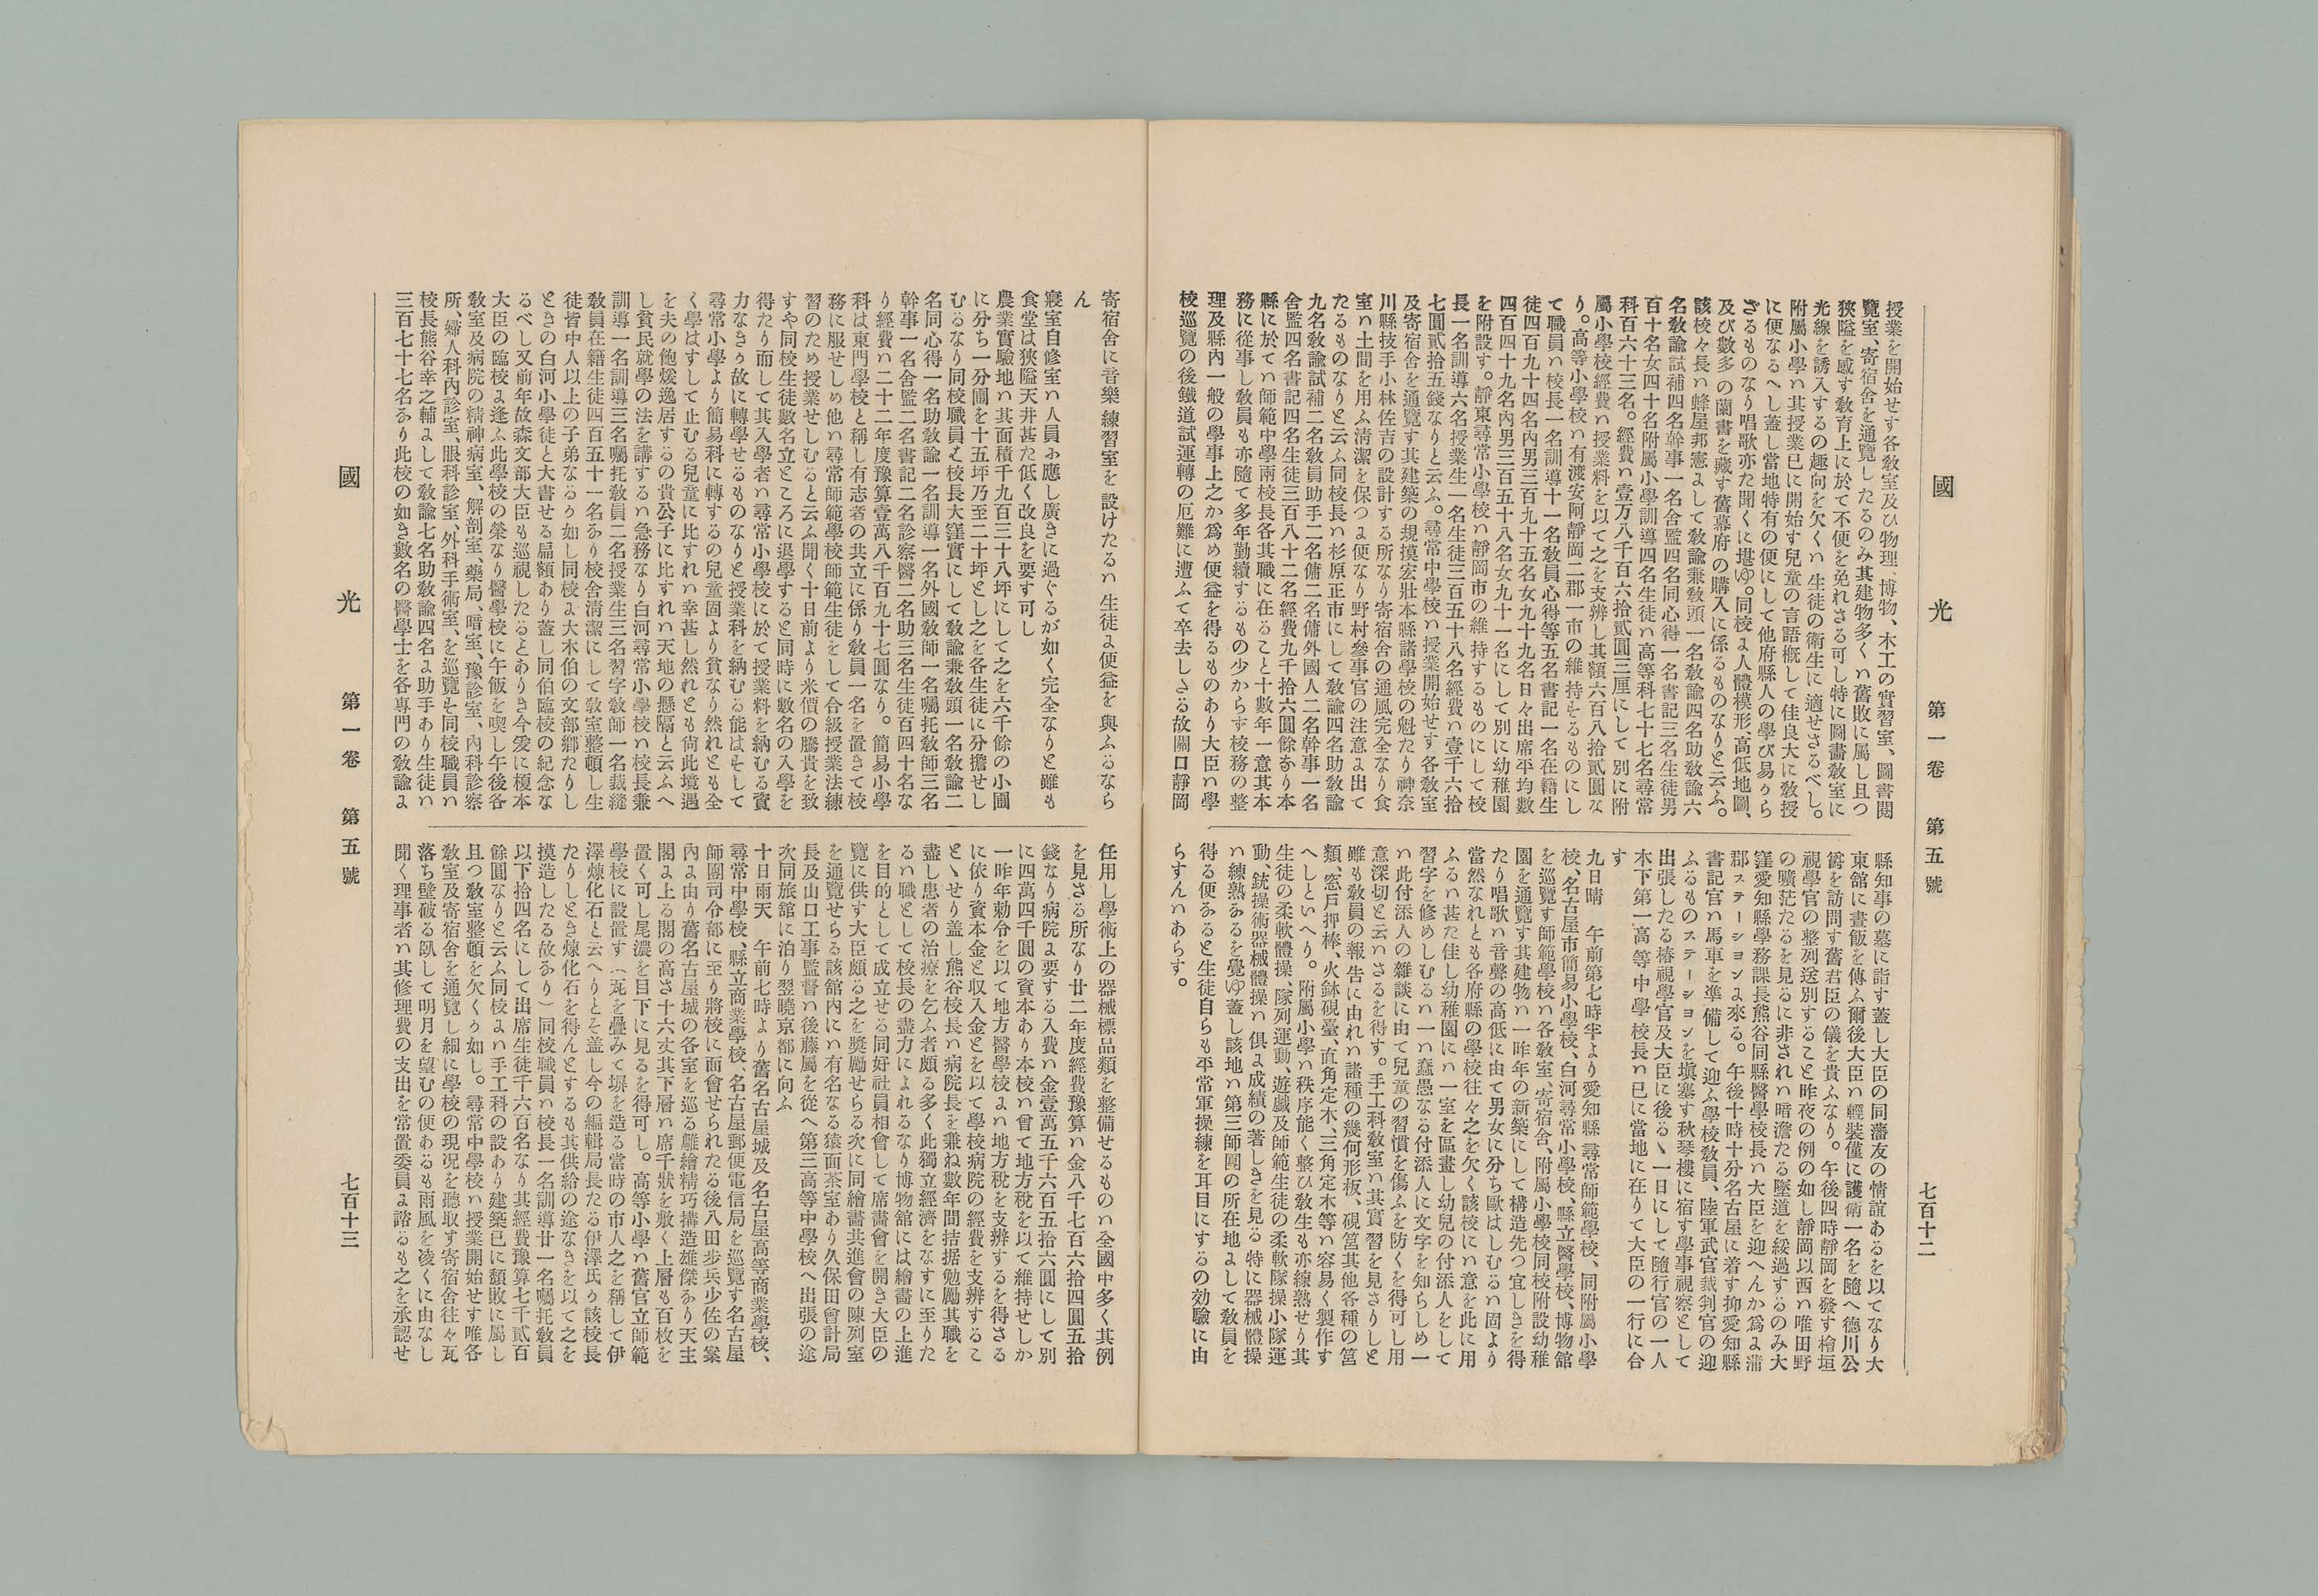 國光 第一卷 第五號 七百十二
授業を開始せす各敎室及ひ物理、博物、木工の實習室、圖書閱
覽室、寄宿舍を通覽したるのみ其建物多くハ舊敗に屬し且つ
狹隘を感す敎育上に於て不便を免れさる可し特に圖畵敎室に
光線を誘入するの趣向を欠くハ生徒の衛生に適せさるべし。
附屬小學ハ其授業已に開始す兒童の言語槪して佳良大に敎授
に便なるへし蓋し當地特有の便にして他府縣人の學び易から
ざるものなり唱歌亦た聞くに堪ゆ。同校に人體模形、高低地圖、
及び數多の蘭書を藏す舊幕府の購入に係るものなりと云ふ。
該校々長ハ蜂屋邦憲にして敎諭兼敎頭一名敎諭四名助敎諭六
名敎諭試補四名幹事一名舍監四名同心得一名書記三名生徒男
百十名女四十名附屬小學訓導四名生徒ハ高等科七十七名尋常
科百六十三名。經費ハ壹万八千百六拾貳圓三厘にして別に附
屬小學校經費ハ授業料を以て之を支辨し其額六百八拾貳圓な
り。高等小學校ハ有渡安阿靜岡二郡一市の維持せるものにし
て職員ハ校長一名訓導十一名敎員心得等五名書記一名在籍生
徒四百九十四名內男三百九十五名女九十九名日々出席平均數
四百四十九名內男三百五十八名女九十一名にして別に幼稚園
を附設す。靜東尋常小學校ハ靜岡市の維持するものにして校
長一名訓導六名授業生一名生徒三百五十八名經費ハ壹千六拾
七圓貳拾五錢なりと云ふ。尋常中學校ハ授業開始せす各敎室
及寄宿舍を通覽す其建築の規摸宏壯本縣諸學校の魁たり神奈
川縣技手小林佐吉の設計する所なり寄宿舍の通風完全なり食
室ハ土間を用ふ淸潔を保つに便なり野村參事官の注意に出て
たるものなりと云ふ同校長ハ杉原正市にして敎諭四名助敎諭
九名敎諭試補二名敎員助手二名傭二名傭外國人二名幹事一名
舍監四名書記四名生徒三百八十二名經費九千拾六圓餘なり本
縣に於てハ師範中學兩校長各其職に在ること十數年一意其本
務に從事し敎員も亦隨て多年勤續するもの少からす校務の整
理及縣內一般の學事上之か爲め便益を得るものあり大臣ハ學
校巡覽の後鐵道試運轉の厄難に遭ふて卒去しさる故關口靜岡
縣知事の墓に詣す蓋し大臣の同藩友の情誼あるを以てなり大
東舘に晝飯を傳ふ爾後大臣ハ輕裝僅に護衛一名を隨へ德川公
爵を訪問す舊君臣の儀を貴ふなり。午後四時靜岡を發す檜垣
視學官の整列送別すること昨夜の例の如し靜岡以西ハ唯田野
の曠茫たるを見るに非されハ暗澹たる墜道を綏過するのみ大
窪愛知縣學務課長熊谷同縣醫學校長ハ大臣を迎へんか爲に蒲
郡ステーシヨンに來る。午後十時十分名古屋に着す抑愛知縣
書記官ハ馬車を準備して迎ふ學校敎員、陸軍武官裁判官の迎
ふるものステーシヨンを塡塞す秋琴樓に宿す學事視察として
出張したる椿視學官及大臣に後るヽ一日にして隨行官の一人
木下第一高等中學校長ハ已に當地に在りて大臣の一行に合
す
九日晴　午前第七時半より愛知縣尋常師範學校、同附屬小學
校、名古屋市簡易小學校、白河尋常小學校、縣立醫學校、博物館
を巡覽す師範學校ハ各敎室、寄宿舍、附屬小學校同校附設幼稚
園を通覽す其建物ハ一昨年の新築にして構造先つ宜しきを得
たり唱歌ハ音聲の高低に由て男女に分ち歐はしむるハ固より
當然なれとも各府縣の學校往々之を欠く該校にハ意を此に用
ふるハ甚た佳し幼稚園にハ一室を區畫し幼兒の付添人をして
習字を修めしむるハ一ハ蠢愚なる付添人に文字を知らしめ一
ハ此付添人の雜談に由て兒童の習慣を傷ふを防くを得可し用
意深切と云ハさるを得す。手工科敎室ハ其實習を見さりしと
雖も敎員の報告に由れハ諸種の幾何形板、硯筥其他各種の筥
類、窓戶押棒、火鉢硯臺、直角定木、三角定木等ハ容易く製作す
へしといへり。附屬小學ハ秩序能く整ひ敎生も亦練熟せり其
生徒の柔軟體操、隊列運動、遊戲及師範生徒の柔軟隊操小隊運
動、銃操術器械體操ハ俱に成績の著しきを見る特に器械體操
ハ練熟あるを覺ゆ蓋し該地ハ第三師團の所在地にして敎員を
得る便あると生徒自らも平常軍操練を耳目にするの効驗に由
らすんハあらす。
寄宿舍に音樂練習室を設けたるハ生徒に便益を與ふるなら
ん
寢室自修室ハ人員に應し廣きに過ぐるが如く完全なりと雖も
食堂は狹隘天井甚た低く改良を要す可し
農業實驗地ハ其面積千九百三十八坪にして之を六千餘の小圃
に分ち一分圃を十五坪乃至二十坪とし之を各生徒に分擔せし
むるなり同校職員ハ校長大窪實にして敎諭兼敎頭一名敎諭二
名同心得一名助敎諭一名訓導一名外國敎師一名囑托敎師三名
幹事一名舍監二名書記二名診察醫二名助三名生徒百四十名な
り經費ハ二十二年度豫算壹萬八千百九十七圓なり。簡易小學
科は東門學校と稱し有志者の共立に係り敎員一名を置きて校
務に服せしめ他ハ尋常師範學校師範生徒をして合級授業法練
習のため授業せしむると云ふ聞く十日前より米價の騰貴を致
すや同校生徒數名立ところに退學すると同時に數名の入學を
得たり而して其入學者ハ尋常小學校に於て授業料を納むる資
力なきか故に轉學せるものなりと授業科を納むる能はそして
尋常小學より簡易科に轉するの兒童固より貧なり然れとも全
く學はすして止むる兒童に比すれハ幸甚し然れとも尙此境遇
を夫の飽煖逸居するの貴公子に比すれハ天地の懸隔と云ふへ
し貧民就學の法を講するハ急務なり白河尋常小學校ハ校長兼
訓導一名訓導三名囑托敎員二名授業生三名習字敎師一名裁縫
敎員在籍生徒四百五十一名あり校舍淸潔にして敎室整頓し生
徒皆中人以上の子弟なるか如し同校に大木伯の文部鄕たりし
ときの白河小學徒と大書せる扁額あり蓋し同伯臨校の紀念な
るべし又前年故森文部大臣も巡視したるとありき今爰に榎本
大臣の臨校に逢ふ此學校の榮なり醫學校に午飯を喫し午後各
敎室及病院の精神病室、解剖室、藥局、暗室、豫診室、內科診察
所、婦人科內診室、眼科診室、外科手術室、を巡覽せ同校職員ハ
校長熊谷幸之輔にして敎諭七名助敎諭四名に助手あり生徒ハ
三百七十七名あり此校の如き數名の醫學士を各專門の敎諭に
任用し學術上の器械標品類を整備せるものハ全國中多く其例
を見さる所なり廿二年度經費豫算ハ金八千七百六拾四圓五拾
錢なり病院に要する入費ハ金壹萬五千六百五拾六圓にして別
に四萬四千圓の資本あり本校ハ曾て地方稅を以て維持せしか
一昨年勅令を以て地方醫學校にハ地方稅を支辨するを得さる
に依り資本金と收入金とを以て學校病院の經費を支辨するこ
とヽせり盖し熊谷校長ハ病院長を兼ね數年間拮据勉勵其職を
盡し患者の治療を乞ふ者頗る多く此獨立經濟をなすに至りた
るハ職として校長の盡力によれるなり博物館には繪畵の上進
を目的として成立せる同好社員相會して席畵會を開き大臣の
覽に供す大臣頗る之を奬勵せらる次に同繪畵共進會の陳列室
を通覽せらる該館內にハ有名なる猿面茶室あり久保田會計局
長及山口工事監督ハ後藤屬を從へ第三高等中學校へ出張の途
次同旅舘に泊り翌曉京都に向ふ
十日雨天　午前七時より舊名古屋城及名古屋高等商業學校、
尋常中學校、縣立商業學校、名古屋郵便電信局を巡覽す名古屋
師團司令部に至り將校に面會せられたる後八田步兵少佐の案
內に由り舊名古屋城の各室を巡る雕繪精巧搆造雄傑あり天主
閣に上る閣の高さ十六丈其下層ハ席千狀を敷く上層も百枚を
置く可し尾濃を目下に見るを得可し。高等小學ハ舊官立師範
學校に設置す（瓦を疊みて塀を造る當時の市人之を稱して伊
澤煉化石と云へりとそ盖し今の編輯局長たる伊澤氏か該校長
たりしとき煉化石を得んとするも其供給の途なきを以て之を
摸造したる故あり）同校職員ハ校長一名訓導廿一名囑托敎員
以下拾四名にして出席生徒千六百名なり其經費豫算七千貳百
餘圓なりと云ふ同校にハ手工科の設あり建築已に頹敗に屬し
且つ敎室整頓を欠くか如し。尋常中學校ハ授業開始せす唯各
敎室及寄宿舍を通覽し細に學校の現况を聽取す寄宿舍往々瓦
落ち壁破る臥して明月を望むの便あるも雨風を凌くに由なし
聞く理事者ハ其修理費の支出を常置委員に諮るも之を承認せ
國光 第一卷 第五號 七百十三